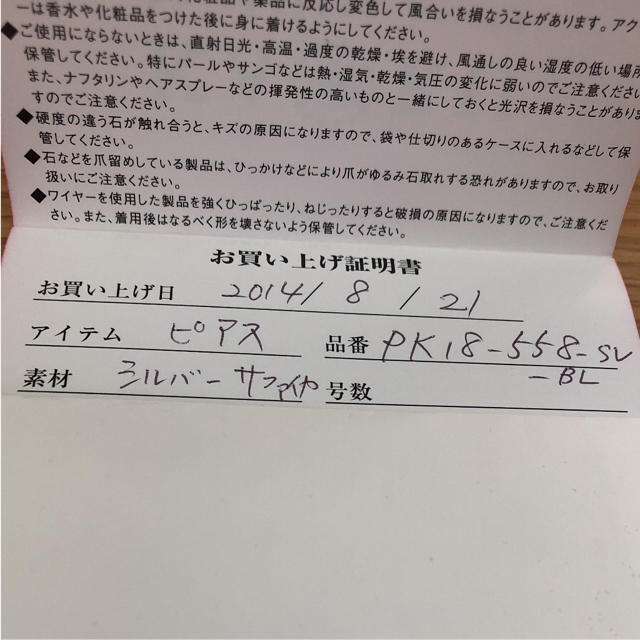 化粧品や薬品に反応し変色して風合いを損なうことがあります。アク
ーは香水や化粧品をつけた後に身に着けるようにしてください。
◆ご使用にならないときは、直射日光・高温・過度の乾燥・埃を避け、風通しの良い湿度の低い場所
保管してください。特にパールやサンゴなどは熱・湿気・乾燥・気圧の変化に弱いのでご注意ください
また、ナフタリンやヘアスプレーなどの揮発性の高いものと一緒にしておくと光沢を損なうことがありま
すのでご注意ください。
◆硬度の違う石が触れ合うと、キズの原因になりますので、袋や仕切りのあるケースに入れるなどして保
管してください。
◆石などを爪留めしている製品は、ひっかけなどにより爪がゆるみ石取れする恐れがありますので、お取り
扱いにご注意ください。
◆ワイヤーを使用した製品を強くひっぱったり、ねじったりすると破損の原因になりますので、ご注意くだ
さい。また、着用後はなるべく形を壊さないよう保管してください。
お買い上げ証明書
お買い上げ日 2014/8/21
アイテム ピアス 品番 PK18-558-SV
-BL
素材 シルバー サファイヤ 号数